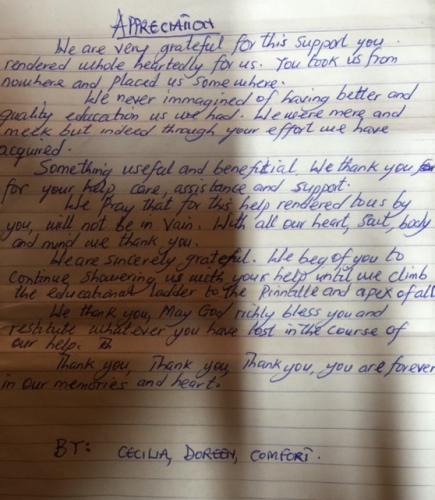 APPRECIATION
We are very grateful for this support you
rendered whole heartedly for us. You took us from
nowhere and placed us somewhere.
We never immagined of having better and
quality education us we had. We were mere and
meek but indeed through your effort we have
acquired.
Something useful and benefitial. We thank you for
for your help, care, assistance and support.
We Pray that for this help rendered to us by
you, will not be in vain. With all our heart, Soul, body
and mind we thank you.
We are sincerely grateful. We beg of you to
continue showering us with your help until we climb
the educational ladder to the Pinnalle and apex of all
We thank you, May God richly bless you and
restitute whatever you have lost in the course of
our help.
Thank you, Thank you, Thank you, you are forever
in our memories and heart.
BY: CECILIA, DOREEN, COMFORT.